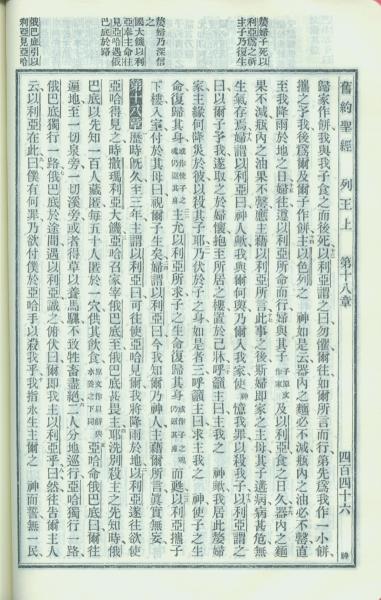 嫠婦子死以利亞為之祈主子乃復生
嫠婦乃深信之
國大饑以利亞奉主命往見亞哈遇俄巴底於路
俄巴底引以利亞見亞哈
舊約聖經 列王上 第十八章 四百四十六 神
歸家作餅我與我子食之而後死以利亞謂之曰勿懼爾往如所言而行第先為我作一小餅
攜之予我後為爾及爾子作餅主以色列之 神如是云器內之麵必不減瓶內之油必不罄直
至我降雨於地之日婦往遵以利亞所命而行婦與其子及以利亞食之日久器內之麵
果不減瓶內之油果不罄應主藉以利亞所言此事之後斯婦即家之主母其子遘病病甚危無
生氣存焉婦謂以利亞曰 神人歟我與爾何與乃爾入我家使 神憶我罪以殺我子以利亞謂之
曰以爾子予我遂取之於婦懷抱至所居之樓置於己牀呼籲主曰主我之 神歟我居此嫠婦
家主緣何降災於彼以殺其子耶乃伏於子之身如是者三呼籲主曰求主我之 神使子之生
命復歸其身主允以利亞所求子之生命復歸其身而甦以利亞攜子
下樓入室付於其母曰視爾子生矣婦謂以利亞曰今我知爾乃神人主藉爾所言眞實無妄
第十八章 歷時旣久至三年主謂以利亞曰可往使亞哈見爾我將降雨於地以利亞遂往欲使
亞哈得見之時撒瑪利亞大饑亞哈召家宰俄巴底至俄巴底甚畏主耶洗別殺主之先知時俄
巴底以先知一百人藏匿每五十人匿於一穴供其飲食亞哈命俄巴底曰爾往
遍地至一切泉旁一切溪旁或者得草以養馬騾不致牲畜盡絕二人分地巡行亞哈獨行一路
俄巴底獨行一路俄巴底於途間遇以利亞識之俯伏曰爾即我主以利亞乎曰然往告爾主人
云以利亞在此曰僕有何罪乃欲付僕於亞哈手以殺我乎我指永生主爾之 神而誓無一民